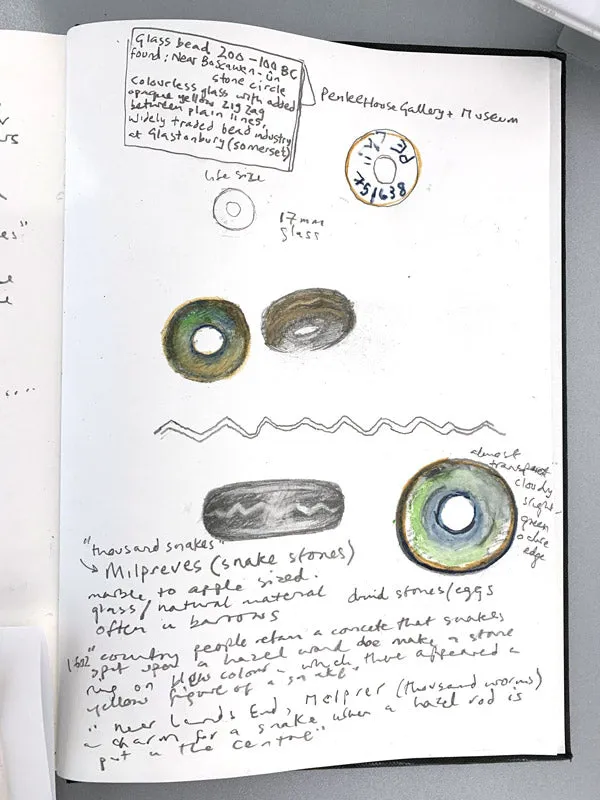 Glass bead 200-100 BC
found: Near Boscawen-ūn
stone circle
Colourless glass with added
opaque yellow zig zag
between plain lines,
widely traded bead industry
at Glastonbury (somerset)
Penlee House Gallery + Museum
PE
751638
life size
17mm
glass
almost
transparent
cloudy
slight
green
ochre
edge
"thousand snakes"
Milpreves (snake stones)
marble to apple sized.
glass/natural material
druid stones/eggs
often in barrows
1602 "country people retain a conceite that snakes
upon a hazel wand doe make a stone
ring on blew colour - which there appeared a
yellow figure of a snake"
" Near Lands End, Melprer (thousand worms)
a charm for a snake when a hazel rod is
put in the centre"